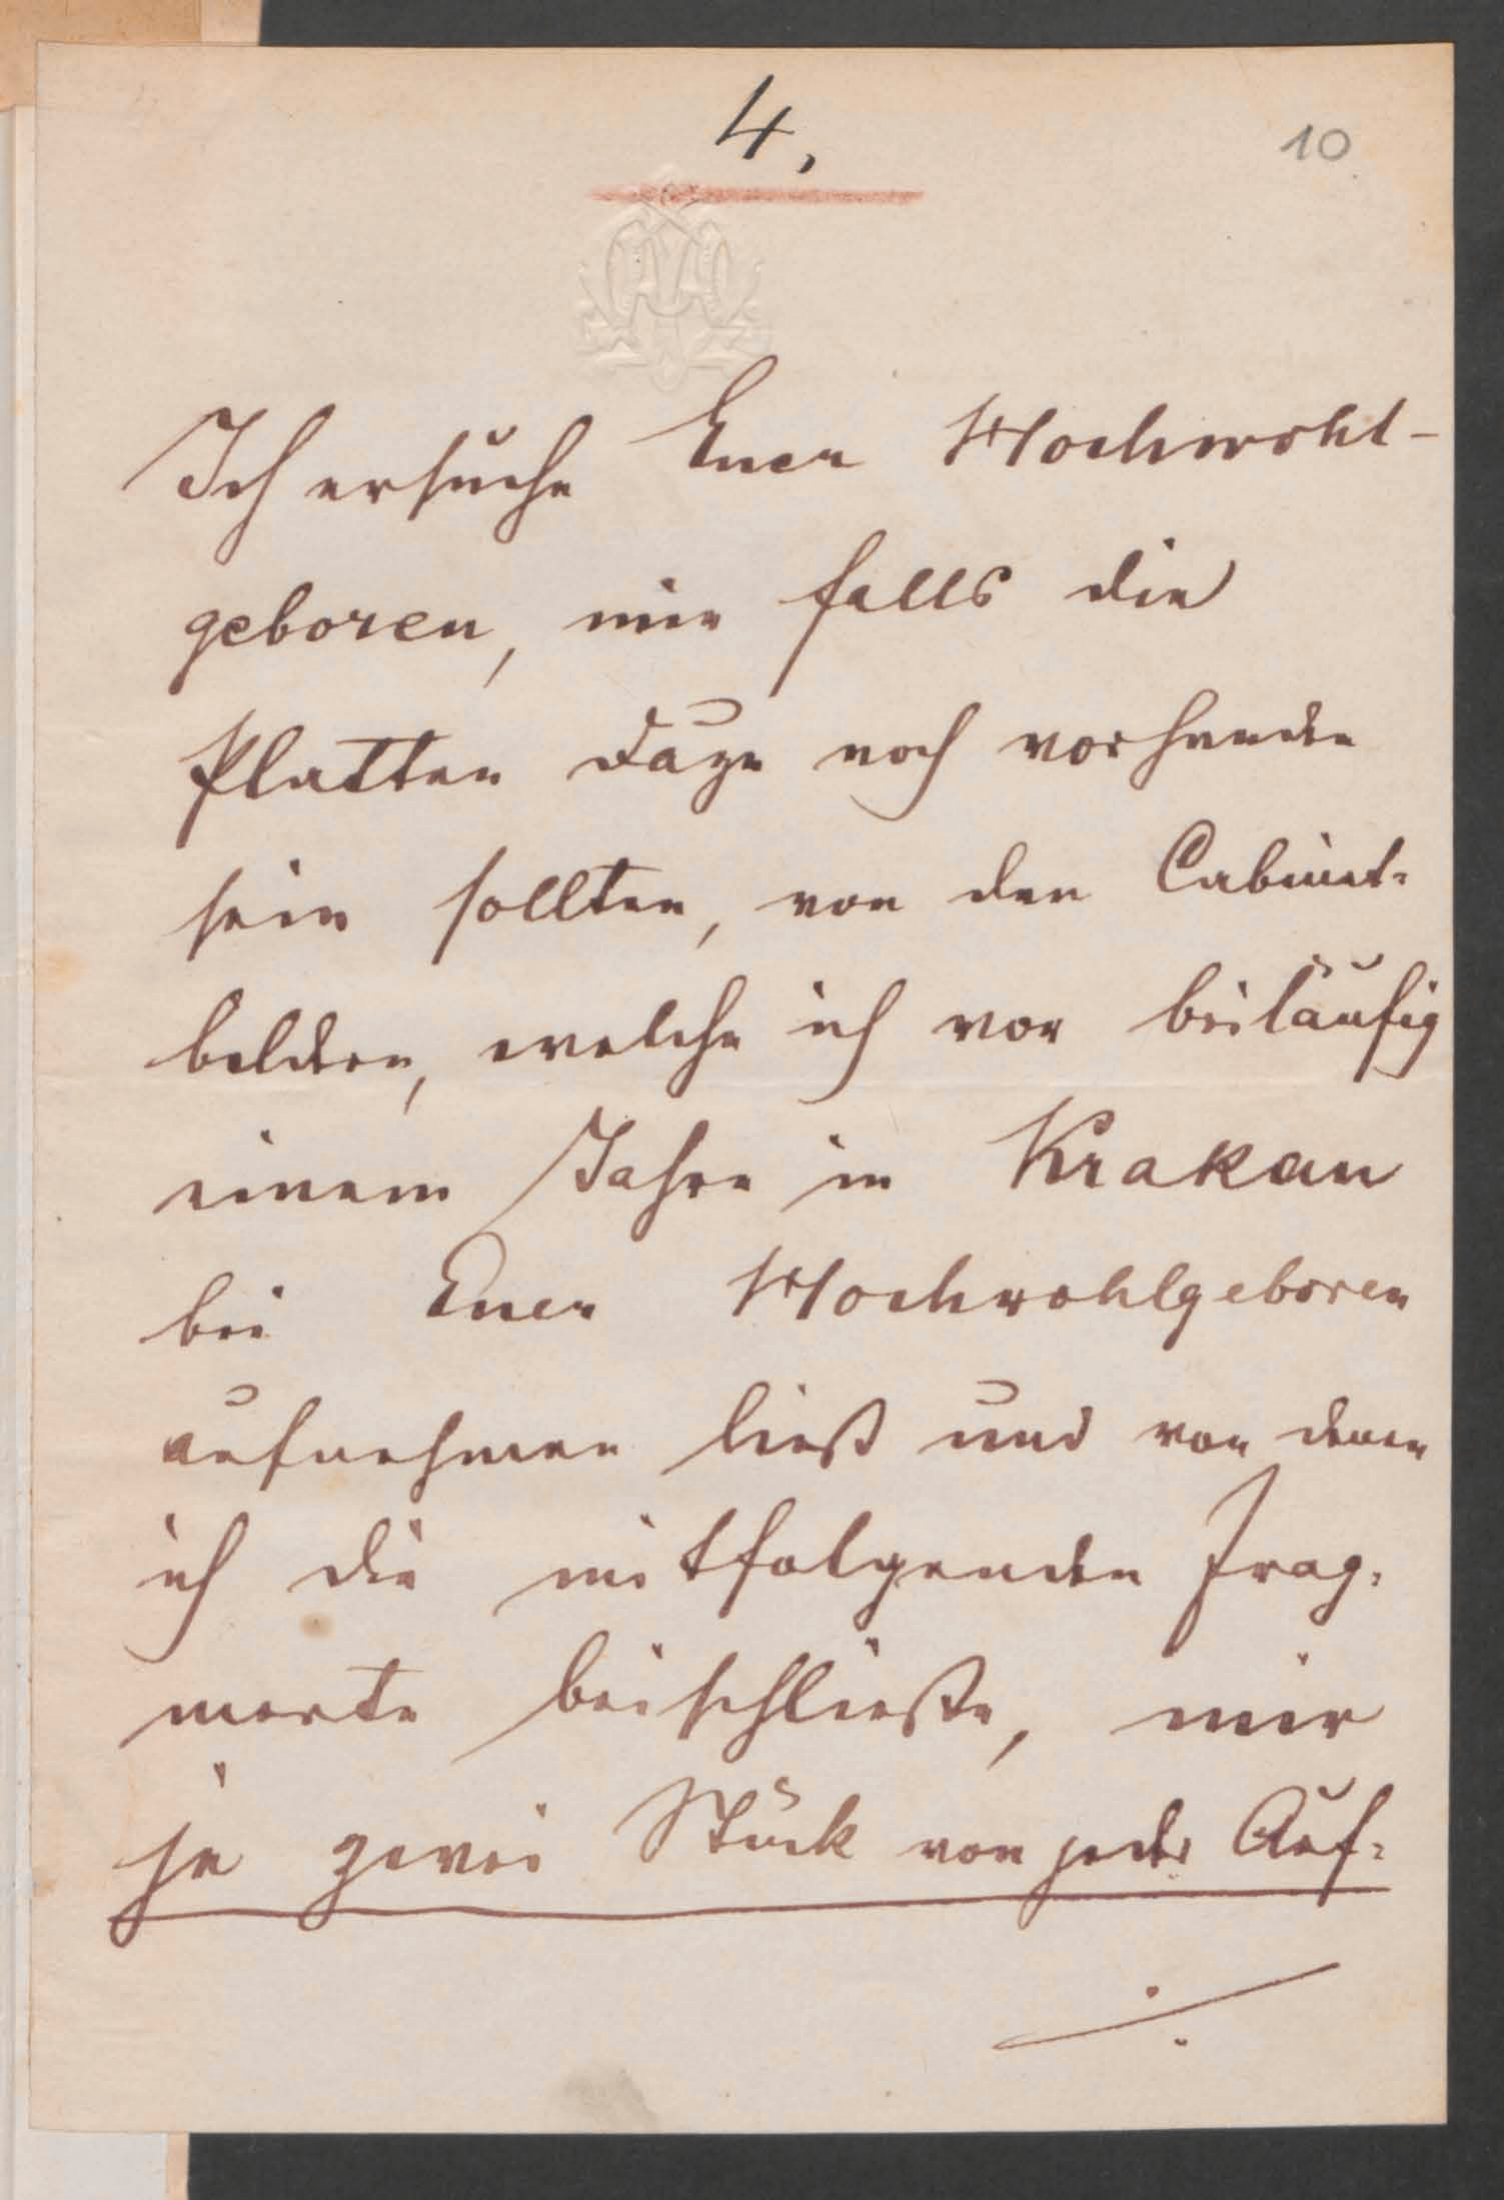 4.
10
Ich ersuche Euer Hochwohl-
geboren, mir falls die
Platten dazu noch vorhanden
sein sollten, von den Cabinet-
bildern, welche ich vor beiläufig
einem Jahre in Krakau
bei Euer Hochwohlgeboren
aufnehmen ließ und von denen
ich die mitfolgenden Frag-
mente beischließe, mir
je zwei Stück von jeder Auf-
./.